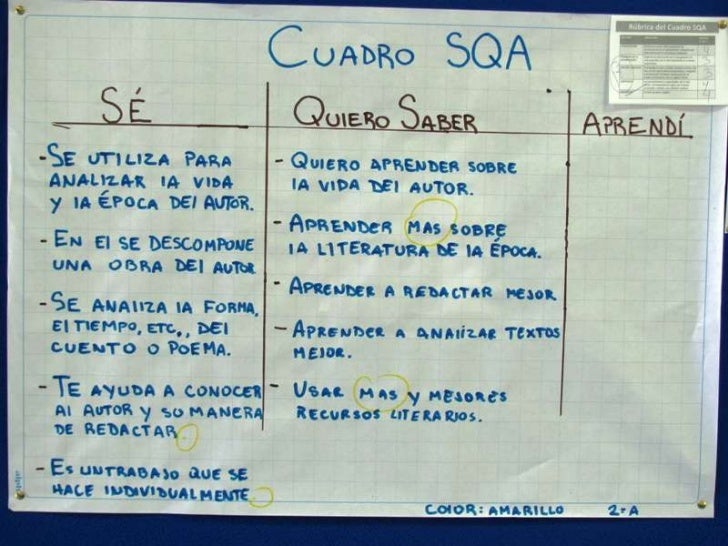 CUADRO SQA
Rúbrica del Cuadro SQA
SÉ
- SE UTILIZA PARA
ANALIZAR lA VIDA
Y lA ÉPOCA DEl AUTOR.
- EN El SE DESCOMPONE
UNA OBRA DEl AUTOR
- SE ANAlIZA lA FORMA,
El TIEMPO, ETC., DEl
CUENTO O POEMA.
- TE AYUDA A CONOCER
Al AUTOR Y SU MANERA
DE REDACTAR.
- ES UN TRABAJO QUE SE
HACE INDIVIDUALMENTE.
QUIERO SABER
- QUIERO APRENDER SOBRE
lA VIDA DEl AUTOR.
- APRENDER MAS SOBRE
lA LITERATURA DE lA ÉPOCA.
- APRENDER A REDACTAR MEJOR
- APRENDER A ANAlIZAR TEXTOS
MEJOR.
- USAR MAS Y MEJORES
RECURSOS LITERARIOS.
APRENDÍ
COlOR: AMARILLO 2-A